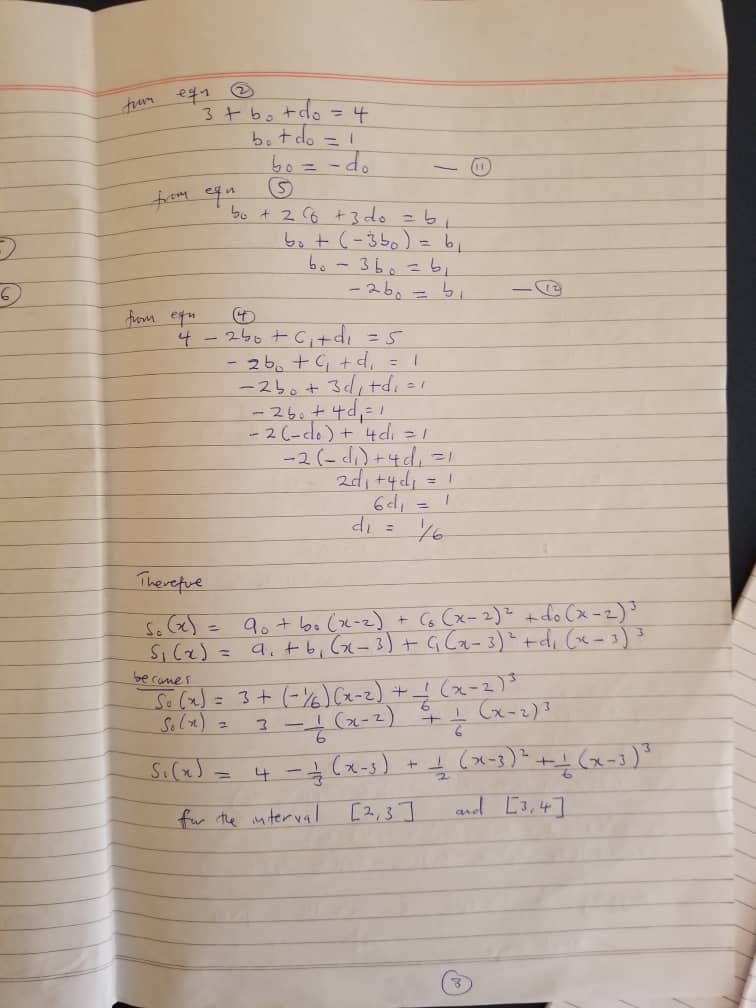 from eqn ②
3 + b₀ + d₀ = 4
b₀ + d₀ = 1
b₀ = - d₀ — ⑪
from eqn ⑤
b₀ + 2C₀ + 3d₀ = b₁
b₀ + (-3b₀) = b₁
b₀ - 3b₀ = b₁
-2b₀ = b₁ — ⑫
from eqn ④
4 - 2b₀ + C₁ + d₁ = 5
- 2b₀ + C₁ + d₁ = 1
-2b₀ + 3d₁ + d₁ = 1
-2b₀ + 4d₁ = 1
-2(-d₀) + 4d₁ = 1
-2(-d₁) + 4d₁ = 1
2d₁ + 4d₁ = 1
6d₁ = 1
d₁ = 1/6
Therefore
S₀(x) = a₀ + b₀(x-2) + C₀(x-2)² + d₀(x-2)³
S₁(x) = a₁ + b₁(x-3) + C₁(x-3)² + d₁(x-3)³
becomes
S₀(x) = 3 + (-1/6)(x-2) + 1/6 (x-2)³
S₀(x) = 3 - 1/6 (x-2) + 1/6 (x-2)³
S₁(x) = 4 - 1/3 (x-3) + 1/2 (x-3)² + 1/6 (x-3)³
for the interval [2,3] and [3,4]
③